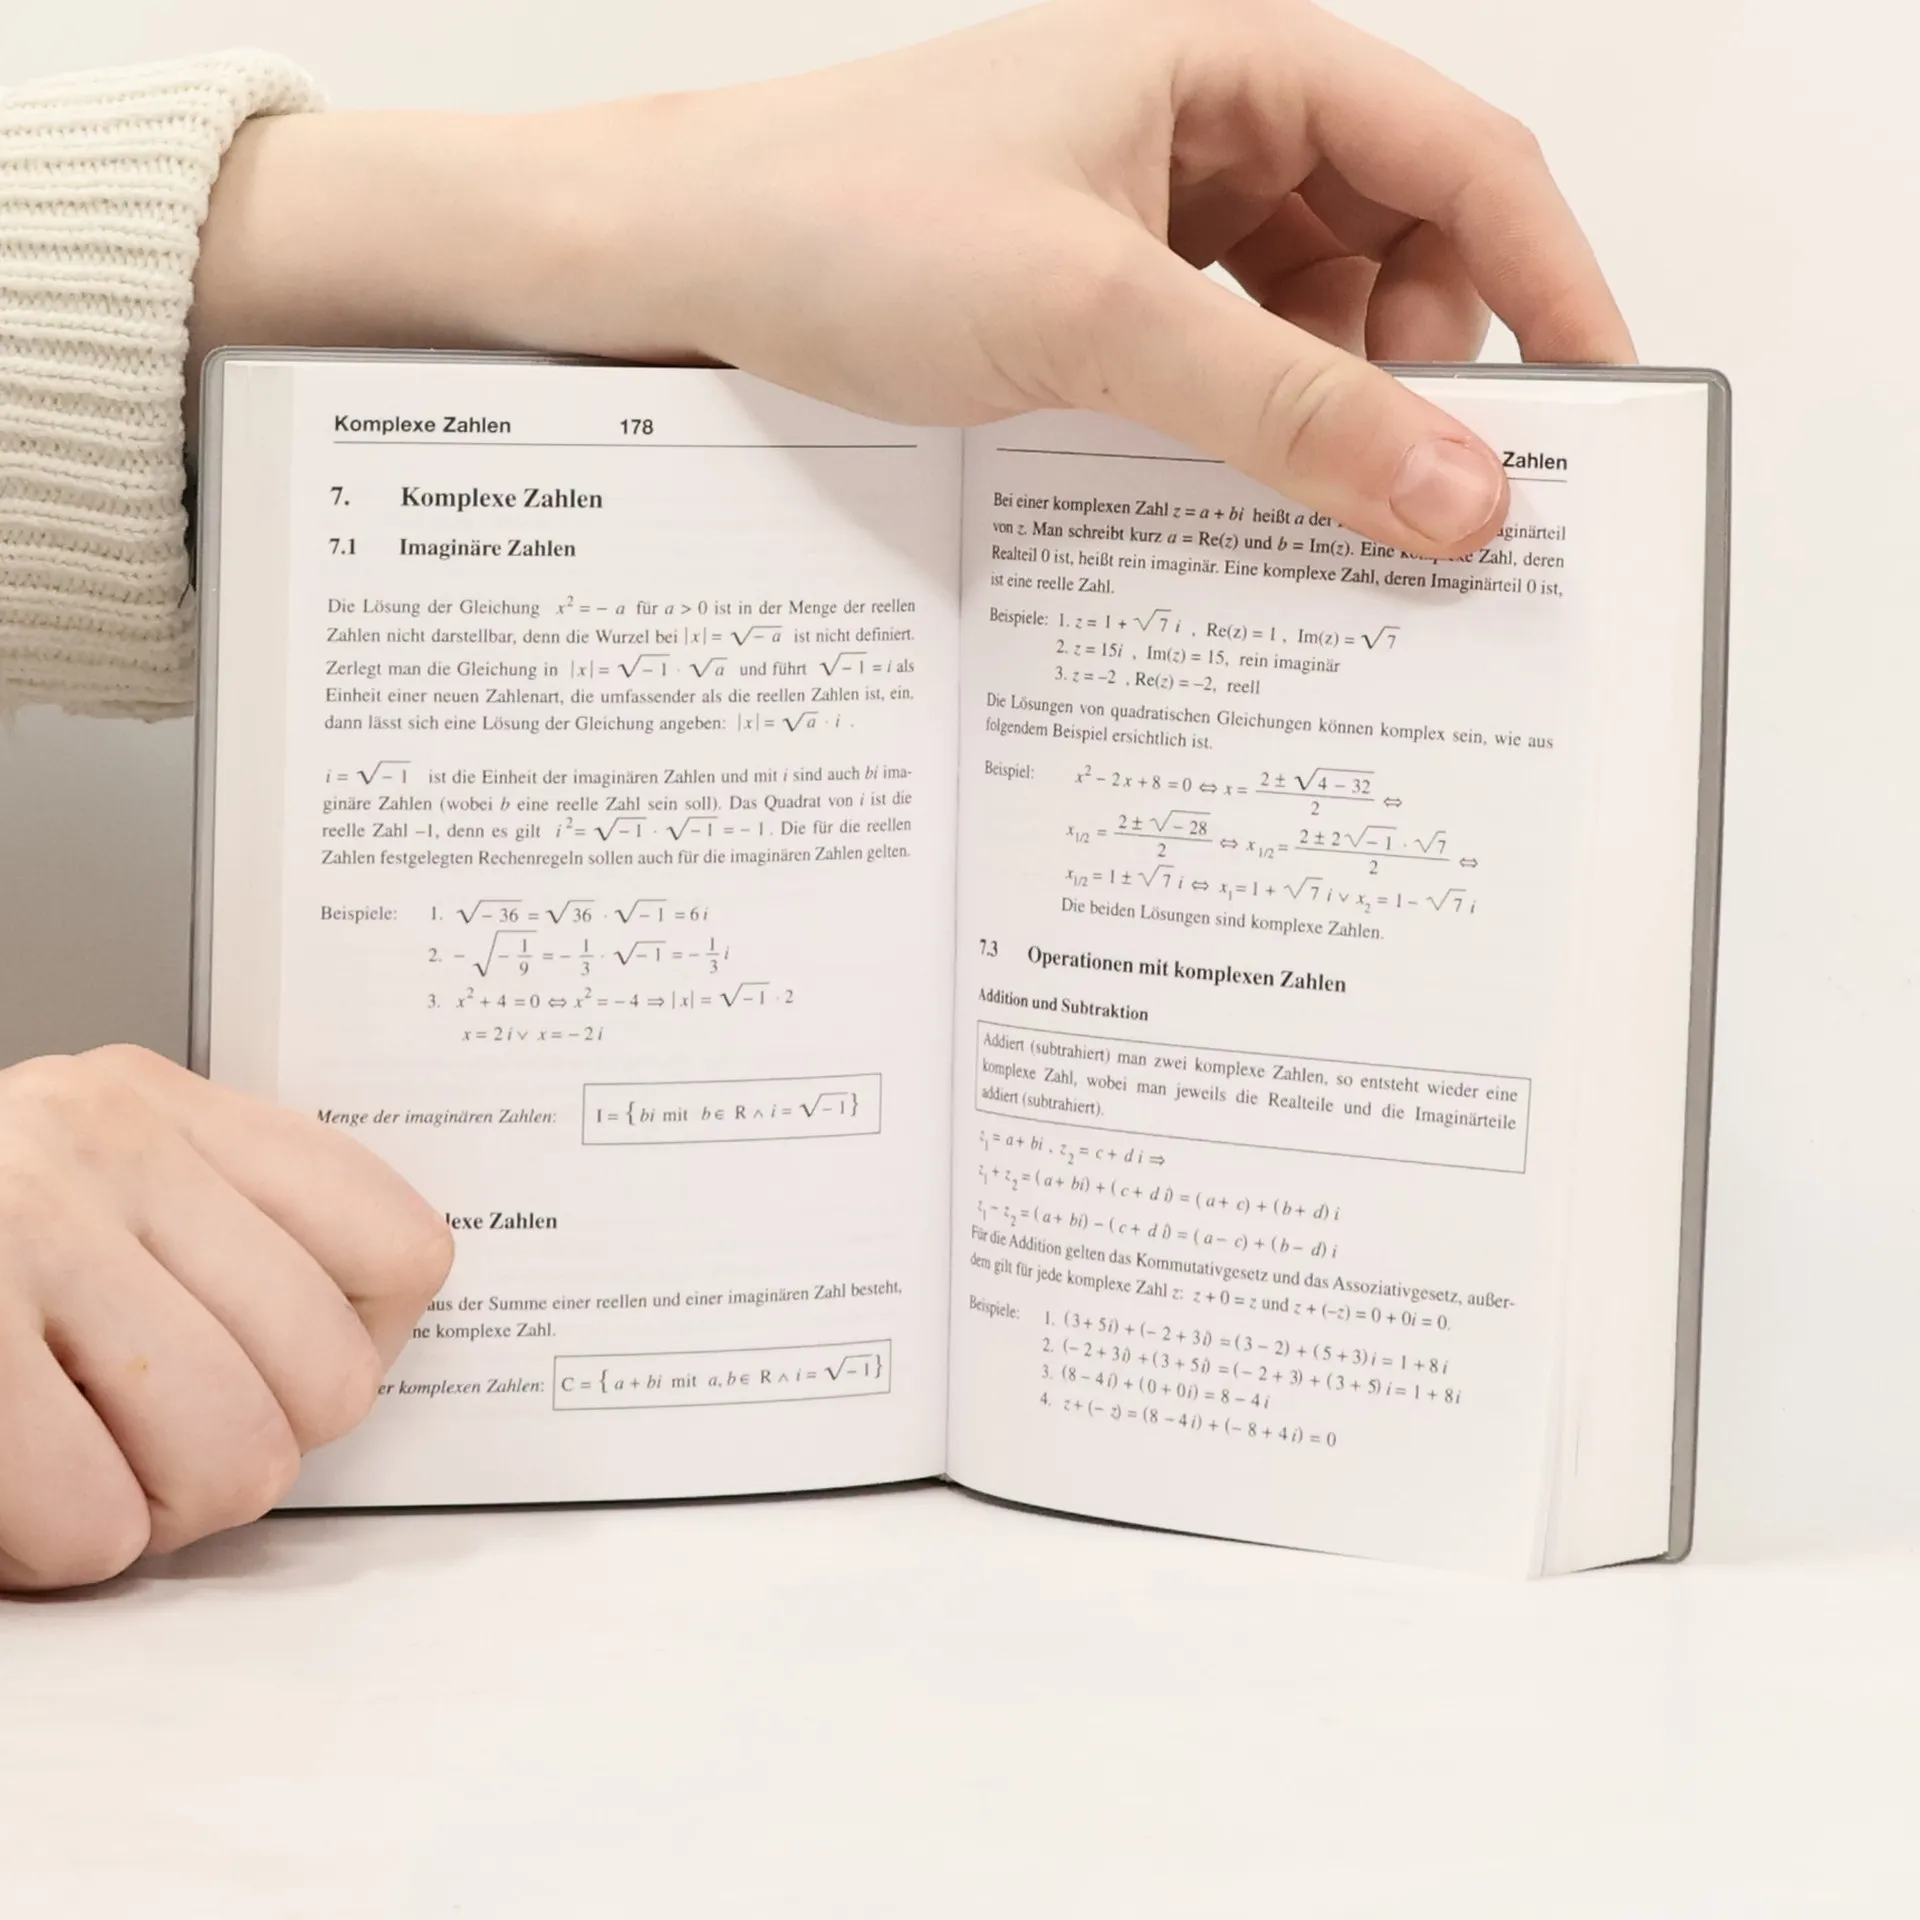 Komplexe Zahlen 178
7. Komplexe Zahlen
7.1 Imaginäre Zahlen
Die Lösung der Gleichung x² = − a für a > 0 ist in der Menge der reellen
Zahlen nicht darstellbar, denn die Wurzel bei |x| = √−a ist nicht definiert.
Zerlegt man die Gleichung in |x| = √−1 · √a und führt √−1 = i als
Einheit einer neuen Zahlenart, die umfassender als die reellen Zahlen ist, ein,
dann lässt sich eine Lösung der Gleichung angeben: |x| = √a · i .
i = √−1 ist die Einheit der imaginären Zahlen und mit i sind auch bi ima-
ginäre Zahlen (wobei b eine reelle Zahl sein soll). Das Quadrat von i ist die
reelle Zahl −1, denn es gilt i² = √−1 · √−1 = − 1. Die für die reellen
Zahlen festgelegten Rechenregeln sollen auch für die imaginären Zahlen gelten.
Beispiele: 1. √−36 = √36 · √−1 = 6 i
2. − √−1/9 = − 1/3 · √−1 = − 1/3 i
3. x² + 4 = 0 ⇔ x² = − 4 ⇒ |x| = √−1 · 2
x = 2 i ∨ x = − 2 i
Menge der imaginären Zahlen: I = { bi mit b ∈ R ∧ i = √−1 }
Zahlen
aus der Summe einer reellen und einer imaginären Zahl besteht,
komplexe Zahl.
komplexen Zahlen: C = { a + bi mit a, b ∈ R ∧ i = √−1 }
Zahlen
Bei einer komplexen Zahl z = a + bi heißt a der
von z. Man schreibt kurz a = Re(z) und b = Im(z). Eine Zahl, deren
Realteil 0 ist, heißt rein imaginär. Eine komplexe Zahl, deren Imaginärteil 0 ist,
ist eine reelle Zahl.
Beispiele: 1. z = 1 + √7 i , Re(z) = 1 , Im(z) = √7
2. z = 15i , Im(z) = 15, rein imaginär
3. z = −2 , Re(z) = −2, reell
Die Lösungen von quadratischen Gleichungen können komplex sein, wie aus
folgendem Beispiel ersichtlich ist.
Beispiel: x² − 2x + 8 = 0 ⇔ x = (2 ± √4 − 32)/2 ⇔
x₁/₂ = (2 ± √−28)/2 ⇔ x₁/₂ = (2 ± 2√−1 · √7)/2 ⇔
x₁/₂ = 1 ± √7 i ⇔ x₁ = 1 + √7 i ∨ x₂ = 1 − √7 i
Die beiden Lösungen sind komplexe Zahlen.
7.3 Operationen mit komplexen Zahlen
Addition und Subtraktion
Addiert (subtrahiert) man zwei komplexe Zahlen, so entsteht wieder eine
komplexe Zahl, wobei man jeweils die Realteile und die Imaginärteile
addiert (subtrahiert).
z₁ = a + bi , z₂ = c + d i ⇒
z₁ + z₂ = (a + bi) + (c + d i) = (a + c) + (b + d) i
z₁ − z₂ = (a + bi) − (c + d i) = (a − c) + (b − d) i
Für die Addition gelten das Kommutativgesetz und das Assoziativgesetz, außer-
dem gilt für jede komplexe Zahl z: z + 0 = z und z + (−z) = 0 + 0i = 0.
Beispiele: 1. (3 + 5i) + (− 2 + 3i) = (3 − 2) + (5 + 3) i = 1 + 8 i
2. (− 2 + 3i) + (3 + 5i) = (− 2 + 3) + (3 + 5) i = 1 + 8i
3. (8 − 4i) + (0 + 0i) = 8 − 4 i
4. z + (− z) = (8 − 4 i) + (− 8 + 4 i) = 0